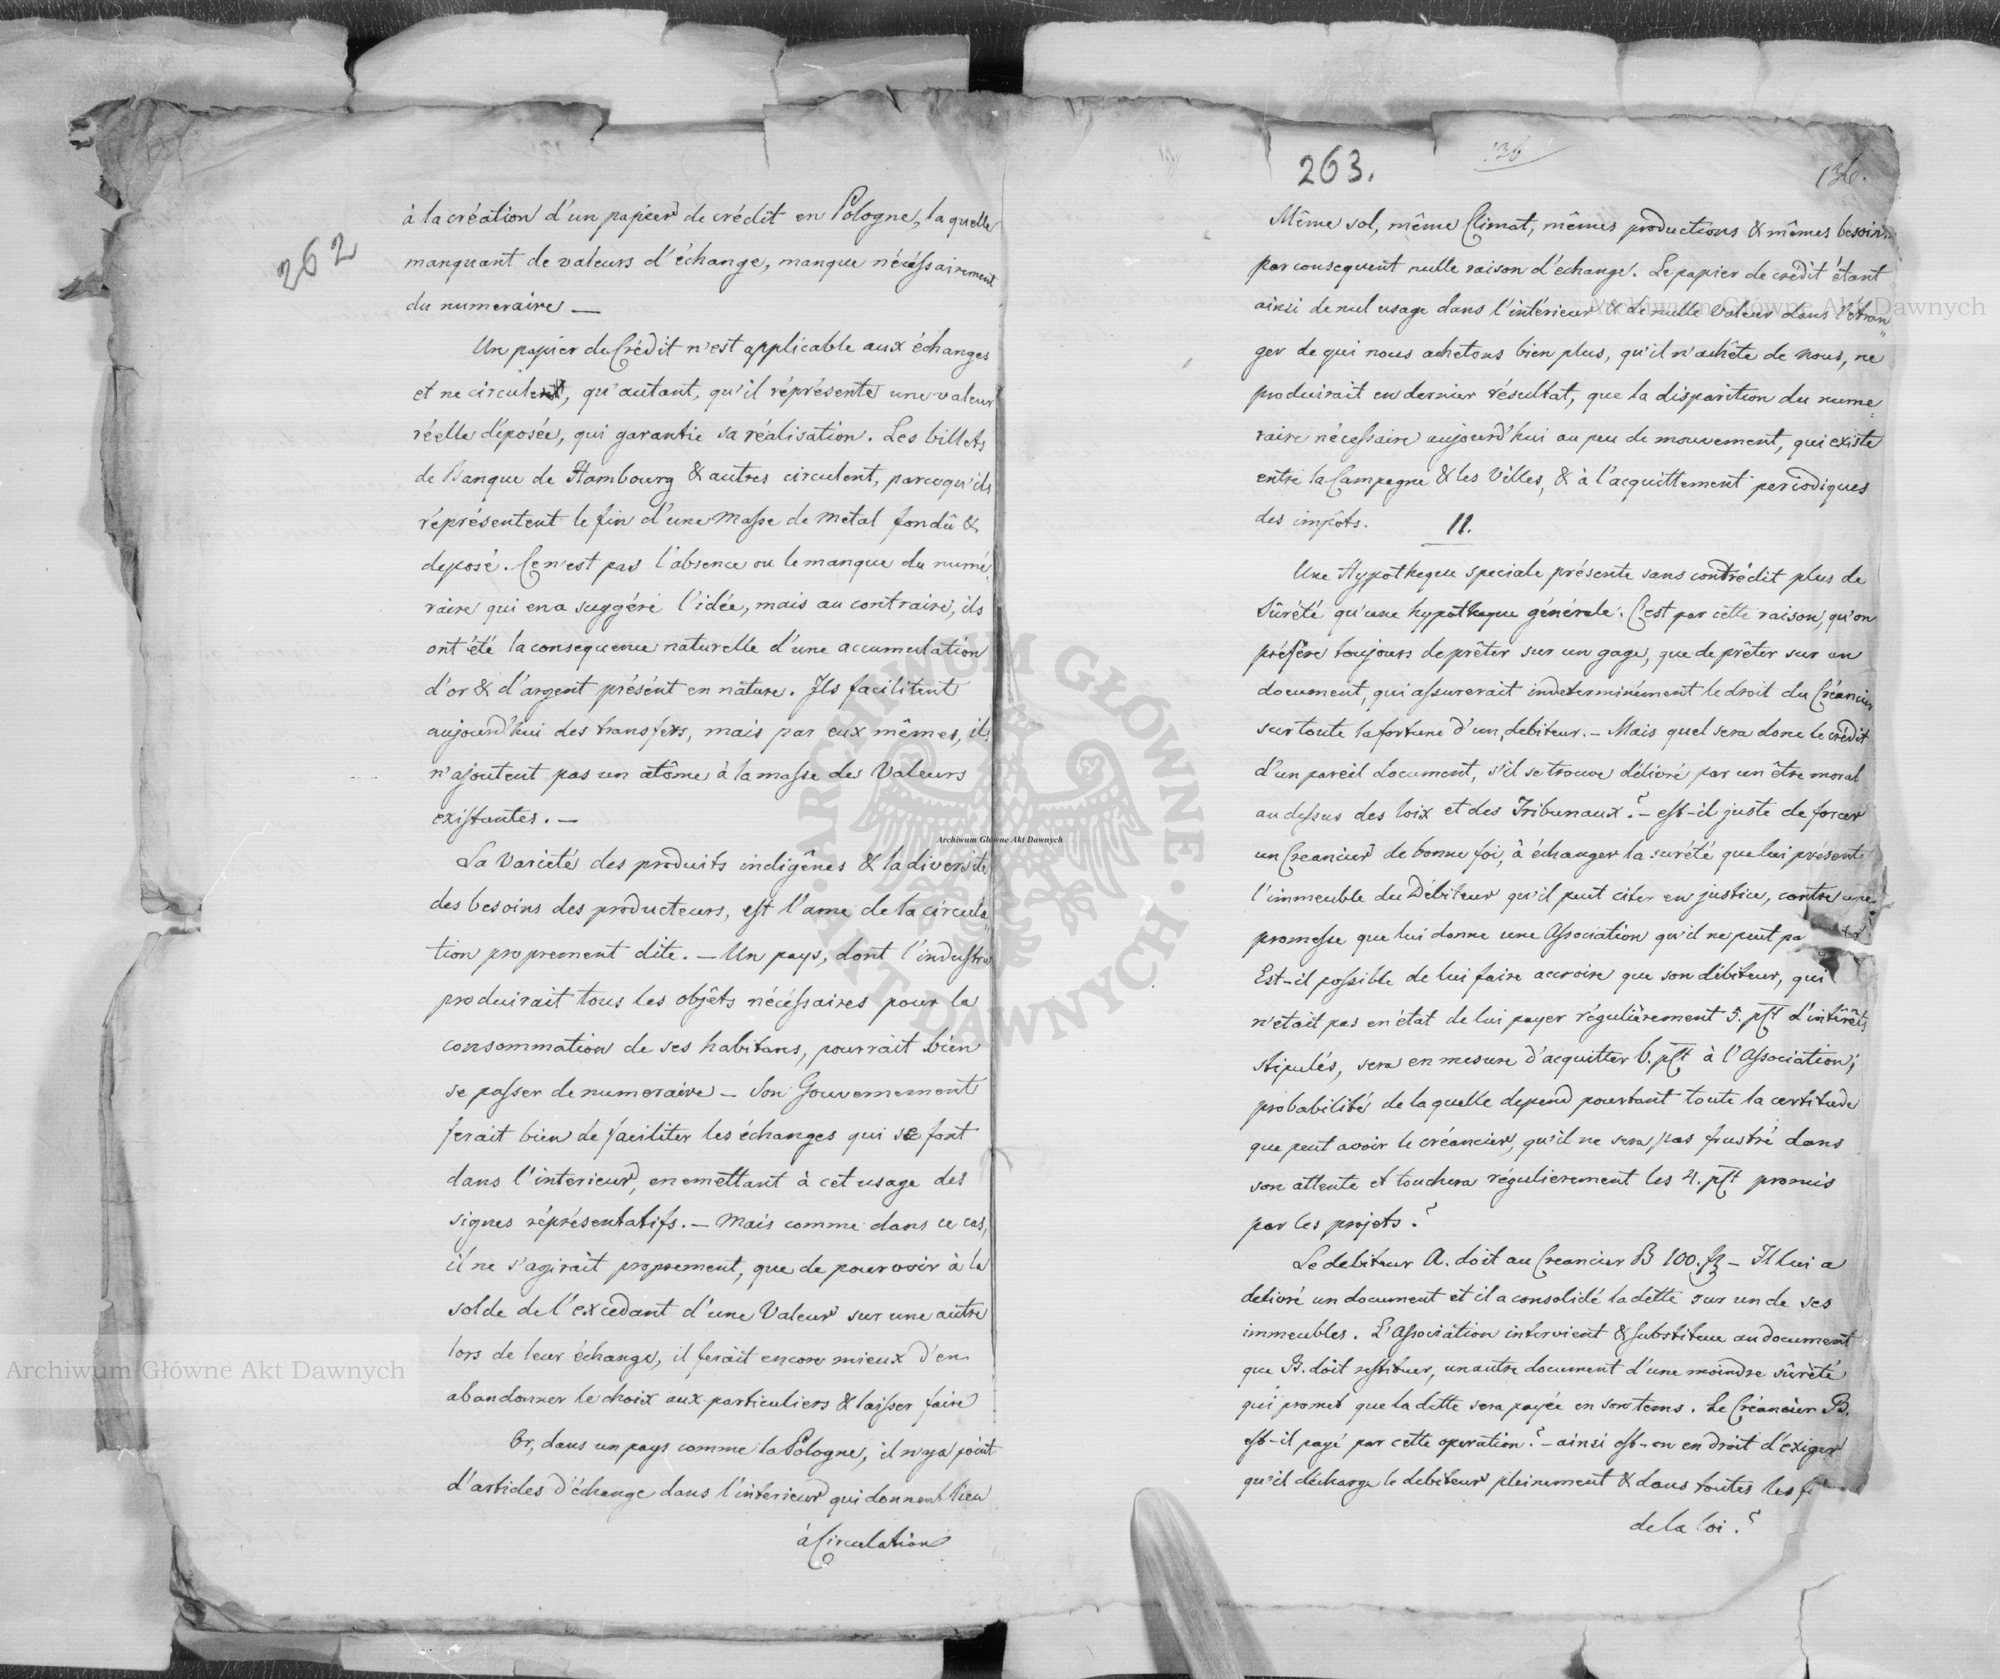 262
à la création d'un papier de crédit en Pologne, laquelle
manquant de valeurs d'échange, manque nécéssairement
du numeraire —
Un papier de Crédit n'est applicable aux échanges
et ne circule, qu'autant, qu'il réprésente une valeur
réelle déposée, qui garantie sa réalisation. Les billets
de Banque de Hambourg & autres circulent, parcequ'ils
réprésentent le fin d'une Masse de Metal fondû &
deposé. Ce n'est pas l'absence ou le manque du numé
raire qui en a suggéré l'idée, mais au contraire, ils
ont été la consequence naturelle d'une accumulation
d'or & d'argent présent en nature. Ils facilitent
aujourd'hui des transferts, mais par eux mêmes, ils
n'ajoutent pas un atôme à la masse des Valeurs
existantes. —
La Varieté des produits indigênes & la diversité
des besoins des producteurs, est l'ame de la circula
tion proprement dite. — Un pays, dont l'industrie
produirait tous les objêts nécéssaires pour la
consommation de ses habitans, pourrait bien
se passer de numeraire — Son Gouvernement
ferait bien de faciliter les échanges qui se font
dans l'interieur, en emettant à cet usage des
signes réprésentatifs. — Mais comme dans ce cas,
il ne s'agirait proprement, que de pourvoir à la
solde de l'excedant d'une Valeur sur une autre
lors de leur échange, il ferait encore mieux d'en
abandonner le choix aux particuliers & laisser faire
Or, dans un pays comme la Pologne, il n'ya point
d'articles d'échange dans l'interieur qui donnent lieu
à Circulation
263.
136
136.
Même sol, même Climat, mêmes productions & mêmes besoins
par consequent nulle raison d'échange. Le papier de crédit étant
ainsi de nul usage dans l'intérieur & de nulle Valeur dans l'étran
ger de qui nous achetons bien plus, qu'il n'achête de nous, ne
produirait en dernier résultat, que la disparition du nume
raire nécessaire aujourd'hui au peu de mouvement, qui existe
entre la Campagne & les Villes, & à l'acquittement periodiques
des impôts.
II.
Une Hypotheque speciale présente sans contrédit plus de
Sûrété qu'une hypotheque générale. C'est par cette raison, qu'on
préfére toujours de prêter sur un gage, que de prêter sur un
document, qui assurerait indeterminément le droit du Créancier
sur toute la fortune d'un debiteur. — Mais quel sera donc le crédit
d'un pareil document, s'il se trouve délivré par un être moral
au dessus des loix et des Tribunaux? — est-il juste de forcer
un Creancier de bonne foi, à échanger la sureté que lui présente
l'immeuble du Débiteur qu'il peut citer en justice, contre une
promesse que lui donne une Association qu'il ne peut
Est-il possible de lui faire accroire que son débiteur, qui
n'etait pas en état de lui payer régulièrement 5. pCt d'intérêts
stipulés, sera en mesure d'acquitter 6. pCt à l'Association;
probabilité de laquelle depend pourtant toute la certitude
que peut avoir le créancier, qu'il ne sera pas frustré dans
son attente et touchera régulierement les 4. pCt promis
par les projets?
Le debiteur A. doit au Creancier B 100. — Il lui a
delivré un document et il a consolidé la dette sur un de ses
immeubles. L'Association intervient & substitue au document
que B. doit restituer, un autre document d'une moindre sûrèté
qui promet que la dette sera payée en son tems. Le Créancier B.
est-il payé par cette operation? — ainsi est-on en droit d'éxiger
qu'il décharge le debiteur pleinement & dans toutes les
de la loi?
Archiwum Główne Akt Dawnych
Archiwum Główne Akt Dawnych
Archiwum Główne Akt Dawnych
ARCHIWUM GŁÓWNE AKT DAWNYCH